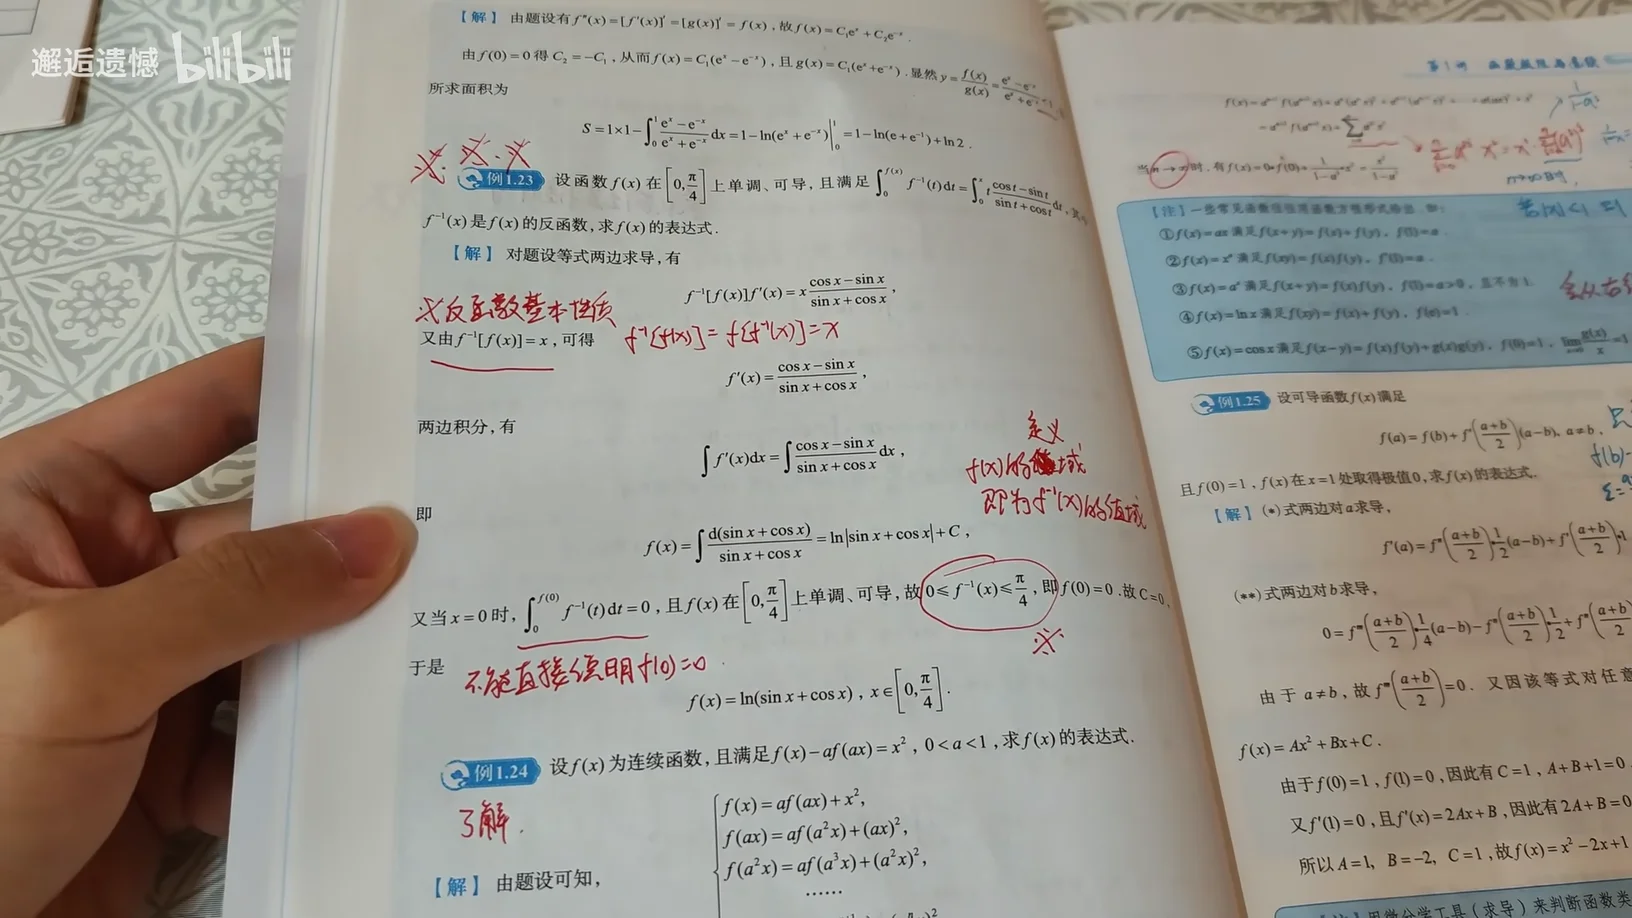 邂逅遗憾 bilibili
【解】 由题设有f″(x)=[f′(x)]′=[g(x)]′=f(x),故f(x)=C₁eˣ+C₂e⁻ˣ.
由f(0)=0得C₂=-C₁,从而f(x)=C₁(eˣ-e⁻ˣ),且g(x)=C₁(eˣ+e⁻ˣ).显然y=f(x)/g(x)=
所求面积为
S=1×1-∫₀¹(eˣ-e⁻ˣ)/(eˣ+e⁻ˣ)dx=1-ln(eˣ+e⁻ˣ)|₀¹=1-ln(e+e⁻¹)+ln2.
例1.23 设函数f(x)在[0,π/4]上单调、可导,且满足∫₀^f(x) f⁻¹(t)dt=∫₀ˣ t(cost-sint)/(sint+cost)dt,
f⁻¹(x)是f(x)的反函数,求f(x)的表达式.
【解】 对题设等式两边求导,有
f⁻¹[f(x)]f′(x)=x(cosx-sinx)/(sinx+cosx),
反函数基本性质
又由f⁻¹[f(x)]=x,可得
f⁻¹[f(x)]=f[f⁻¹(x)]=x
f′(x)=(cosx-sinx)/(sinx+cosx),
两边积分,有
∫f′(x)dx=∫(cosx-sinx)/(sinx+cosx)dx,
定义
f(x)的域
即为f⁻¹(x)的值域
即
f(x)=∫d(sinx+cosx)/(sinx+cosx)=ln|sinx+cosx|+C,
又当x=0时,∫₀^f(0) f⁻¹(t)dt=0,且f(x)在[0,π/4]上单调、可导,故0≤f⁻¹(x)≤π/4,即f(0)=0.故C=0,
于是
不能直接证明f(0)=0.
f(x)=ln(sinx+cosx),x∈[0,π/4].
例1.24 设f(x)为连续函数,且满足f(x)-af(ax)=x²,0<a<1,求f(x)的表达式.
了解.
f(x)=af(ax)+x²,
f(ax)=af(a²x)+(ax)²,
f(a²x)=af(a³x)+(a²x)²,
……
【解】 由题设可知,
【注】一些常见函数
①f(x)=ax满足f(x+y)=f(x)+f(y),f(1)=a.
②f(x)=xᵃ满足f(xy)=f(x)f(y),f′(1)=a.
③f(x)=aˣ满足f(x+y)=f(x)f(y),f(1)=a>0,且不为1.
④f(x)=lnx满足f(xy)=f(x)+f(y),f(e)=1.
⑤f(x)=cosx满足f(x-y)=f(x)f(y)+g(x)g(y),f(0)=1,lim g(x)/x=1
例1.25 设可导函数f(x)满足
f(a)=f(b)+f′((a+b)/2)(a-b),a≠b,
且f(0)=1,f(x)在x=1处取得极值0,求f(x)的表达式.
【解】(*)式两边对a求导,
f′(a)=f″((a+b)/2)·1/2(a-b)+f′((a+b)/2)·1
(**)式两边对b求导,
0=f‴((a+b)/2)·1/4(a-b)-f″((a+b)/2)·1/2+f″((a+b)/2)
由于a≠b,故f‴((a+b)/2)=0.又因该等式对任意
f(x)=Ax²+Bx+C.
由于f(0)=1,f(1)=0,因此有C=1,A+B+1=0
又f′(1)=0,且f′(x)=2Ax+B,因此有2A+B=0
所以A=1,B=-2,C=1,故f(x)=x²-2x+1